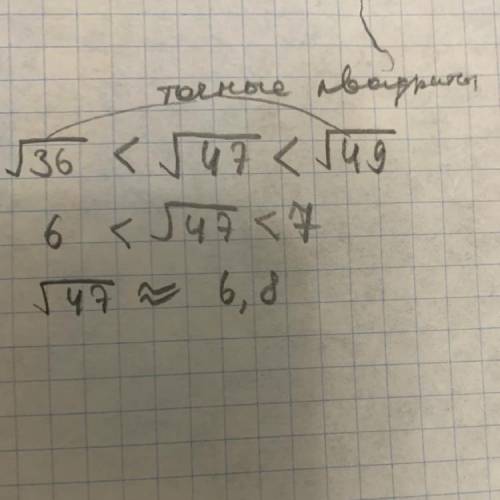 точные квадраты
√36 < √47 < √49
6 < √47 < 7
√47 ≈ 6,8